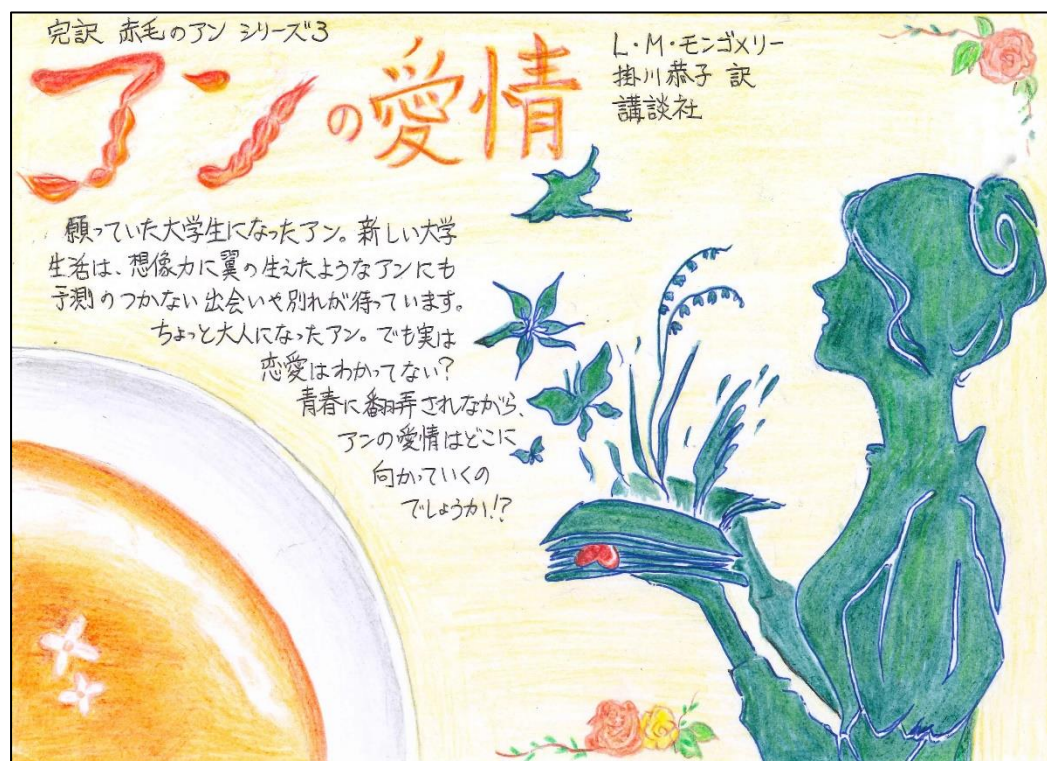 完訳 赤毛のアン シリーズ3
アンの愛情
L・M・モンゴメリー
掛川恭子 訳
講談社
願っていた大学生になったアン。新しい大学
生活は、想像力に翼の生えたようなアンにも
予測のつかない出会いや別れが待っています。
ちょっと大人になったアン。でも実は
恋愛はわかってない?
青春に翻弄されながら、
アンの愛情はどこに
向かっていくの
でしょうか!?